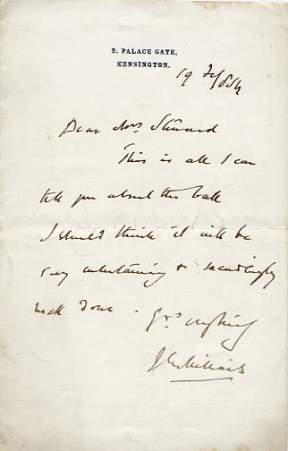 2. PALACE GATE,
KENSINGTON.
19 Feb/84
Dear Mrs Steward
This is all I can
tell you about the ball
I should think it will be
very entertaining & exceedingly
well done.
Yrs
J E Millais